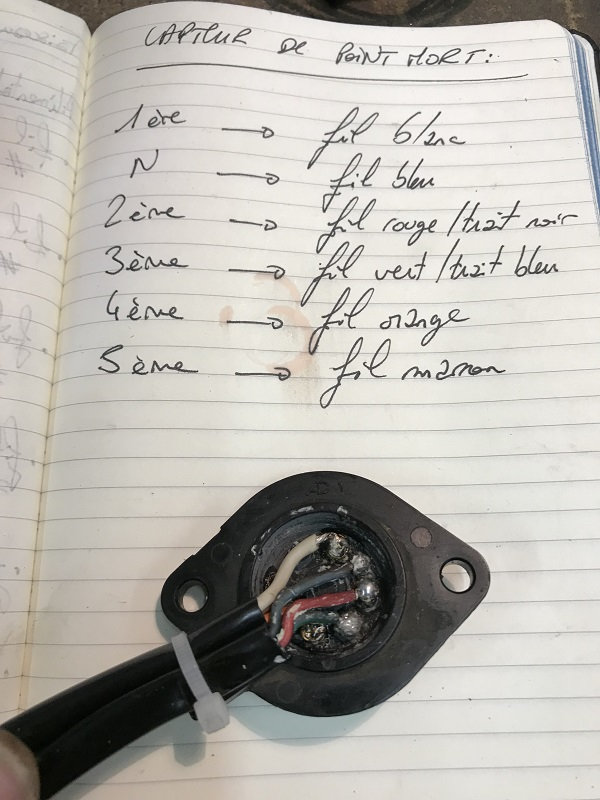 CAPTEUR DE POINT MORT:
1ère → fil blanc
N → fil bleu
2ème → fil rouge / trait noir
3ème → fil vert / trait bleu
4ème → fil orange
5ème → fil marron